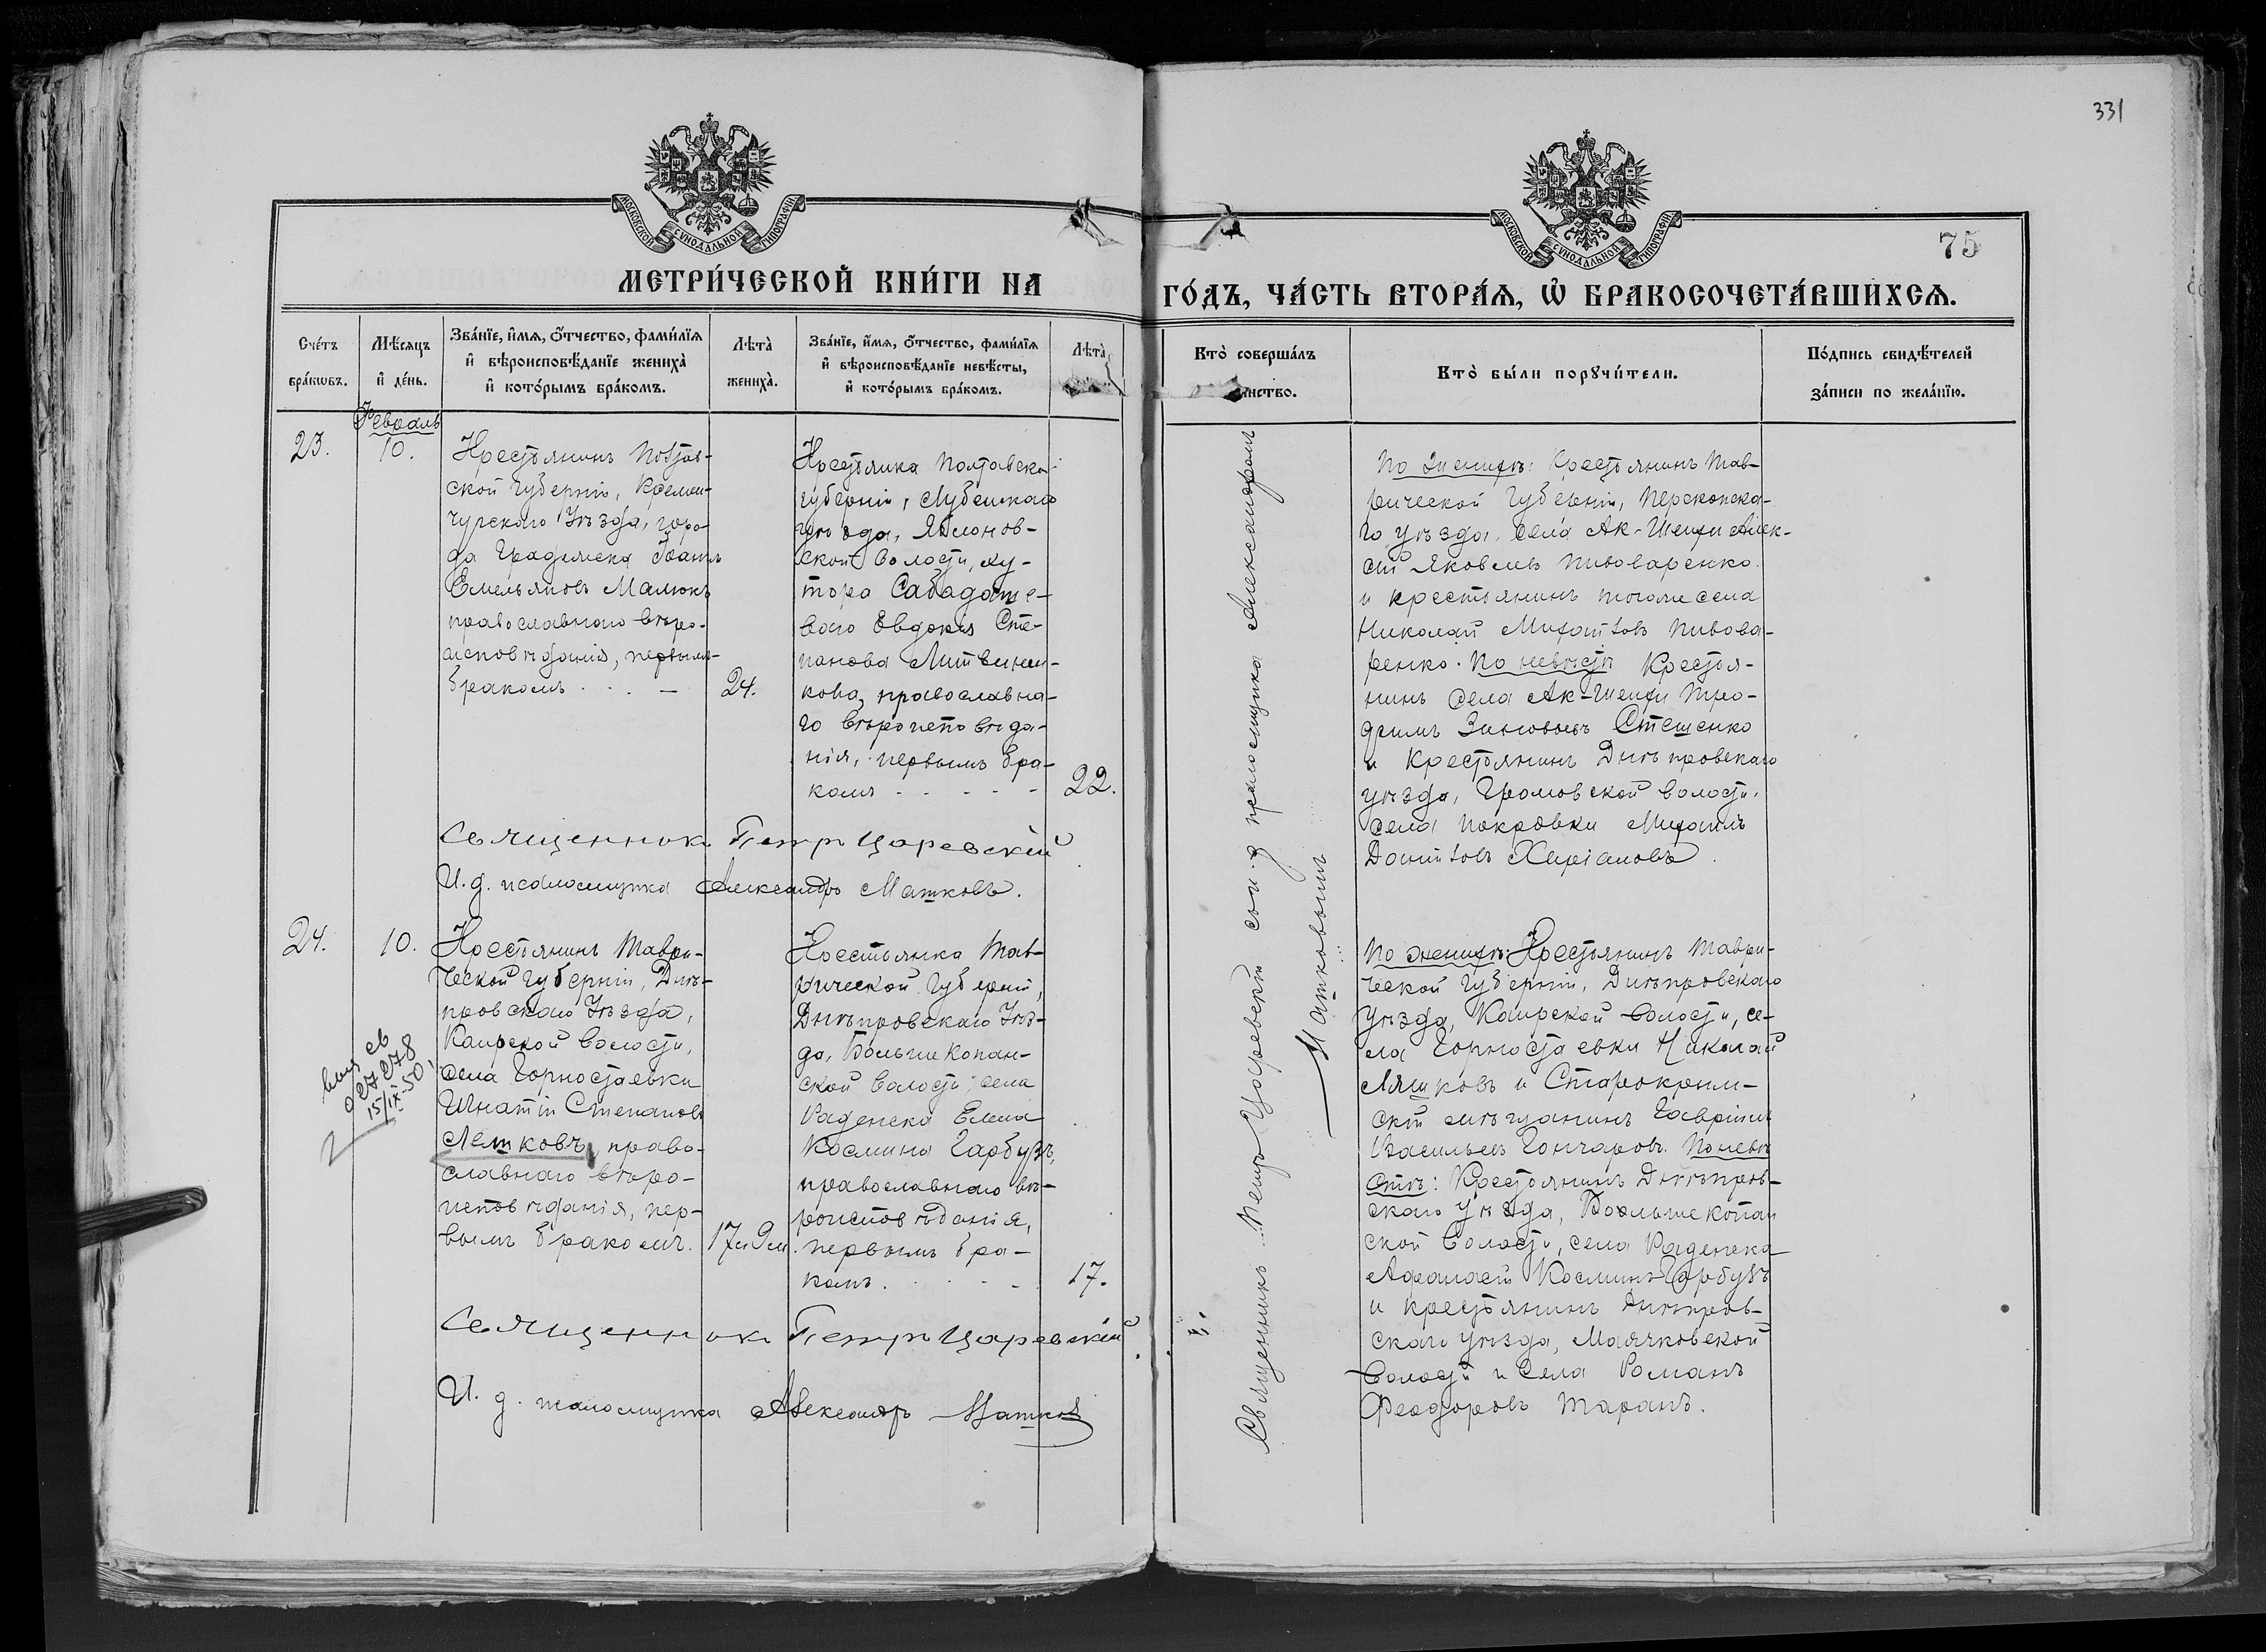 331
75
МОСКОВСКОЙ СѴНОДАЛЬНОЙ ТИПОГРАФІИ
МОСКОВСКОЙ СѴНОДАЛЬНОЙ ТИПОГРАФІИ
МЕТРИ́ЧЕСКОЙ КНИ́ГИ НА
ГО́ДЪ, ЧА́СТЬ ВТОРА́Ѧ, Ѡ҆ БРАКОСОЧЕТА́ВШИХСѦ.
Сче́тъ
бра́кѡвъ.
Мѣ́сѧцъ
и҆ де́нь.
Зва́нїе, и҆́мѧ, ѻ҆́тчество, фами́лїѧ
и҆ вѣроисповѣ́данїе жениха̀
и҆ кото́рымъ бра́комъ.
Лѣта̀
жениха̀.
Зва́нїе, и҆́мѧ, ѻ҆́тчество, фами́лїѧ
и҆ вѣроисповѣ́данїе невѣ́сты,
и҆ кото́рымъ бра́комъ.
Лѣта̀
Кто̀ соверша́лъ
инство.
Кто̀ бы́ли порꙋчи́тели.
По́дпись свидѣ́телей
за́писи по жела́нїю.
Февраль
23.
10.
Крестьянинъ Полтав-
ской Губерніи, Кремен-
чугскаго Уѣзда, горо-
да Градижска Іоаннъ
Емельяновъ Малюкъ
православнаго вѣро-
исповѣданія, первымъ
бракомъ . . . —
24.
Крестьянка Полтавской
губерніи, Лубенскаго
уѣзда, Яблонов-
ской волости, ху-
тора
Евдокія Сте-
панова Литвинен-
кова, православна-
го вѣроисповѣда-
нія, первымъ бра-
комъ - - - - -
22.
По женихѣ: крестьянинъ Тав-
рической Губерніи, Перекопска-
го уѣзда, села Ак-Шеихи Алек-
сѣй Яковлевъ Пивоваренко
и крестьянинъ того же села
Николай Михаиловъ Пивова-
ренко. По невѣстѣ Крестья-
нинъ села Ак-Шеихи Тро-
фимъ Зиновьевъ Стешенко
и Крестьянинъ Днѣпровскаго
уѣзда, Громовской волости,
села Покровки Михаилъ
Даниловъ
Священникъ Петръ Царевскій
И.д. псаломщика Александръ Матковъ.
Священникъ Петръ Царевскій съ и.д. псаломщика Александромъ
Матковымъ
24.
10.
Крестьянинъ Таври-
ческой губерніи, Днѣ-
провскаго Уѣзда,
Каирской волости,
села Горностаевки
Игнатій Степановъ
Ляшковъ, право-
славнаго вѣро-
исповѣданія, пер-
вымъ бракомъ.
17 и 9 м.
Крестьянка Тав-
рической Губерніи,
Днѣпровскаго Уѣз-
да, Больше Копан-
ской волости, села
Раденска Елена
Космина Гарбузъ,
православнаго вѣ-
роисповѣданія,
первымъ бра-
комъ. . . . -
17.
По женихѣ: Крестьянинъ Таври-
ческой Губерніи, Днѣпровскаго
уѣзда, Каирской волости, се-
ла Горностаевки Николай
Ляшковъ и Старокрым-
скій мѣщанинъ Гавріилъ
Васильевъ Гончаровъ. По невѣ-
стѣ: Крестьянинъ Днѣпров-
скаго уѣзда, Больше копан
ской волости, села Раденска
Афанасій Косминъ Гарбузъ
и крестьянинъ Днѣпров-
скаго уѣзда, Маячковской
волости и села Романъ
Феодоровъ Таранъ.
15/IX-50
Священникъ Петръ Царевскій
И. д. псаломщика Александръ Матковъ